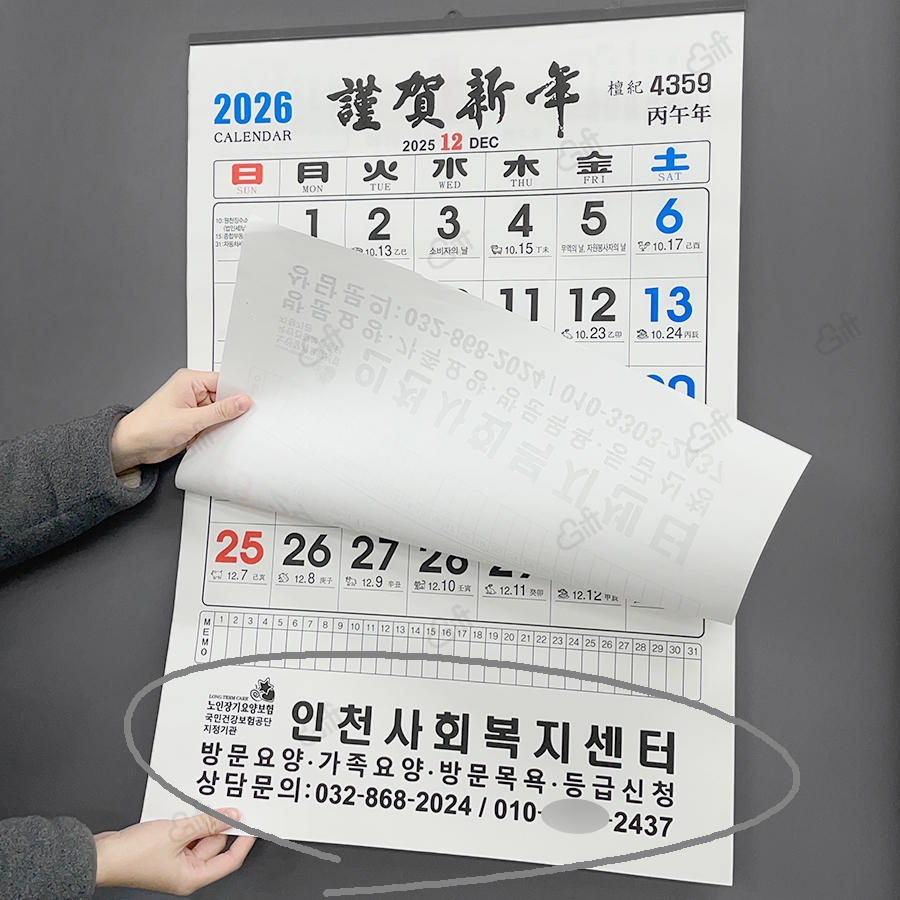 2026
CALENDAR
謹賀新年
檀紀 4359
丙午年
2025 12 DEC
日 月 火 水 木 金 土
SUN MON TUE WED THU FRI SAT
1 2 3 4 5 6
10.13 乙巳 소비자의 날 10.15 丁未 무역의 날, 자원봉사자의 날 10.17 己酉
11 12 13
10.23 乙卯 10.24 丙辰
25 26 27 28
12.7 己亥 12.8 庚子 12.9 辛丑 12.10 壬寅 12.11 癸卯 12.12 甲辰
MEMO 1 2 3 4 5 6 7 8 9 10 11 12 13 14 15 16 17 18 19 20 21 22 23 24 25 26 27 28 29 30 31
LONG TERM CARE
노인장기요양보험
국민건강보험공단
지정기관
인천사회복지센터
방문요양·가족요양·방문목욕·등급신청
상담문의:032-868-2024 / 010- -2437